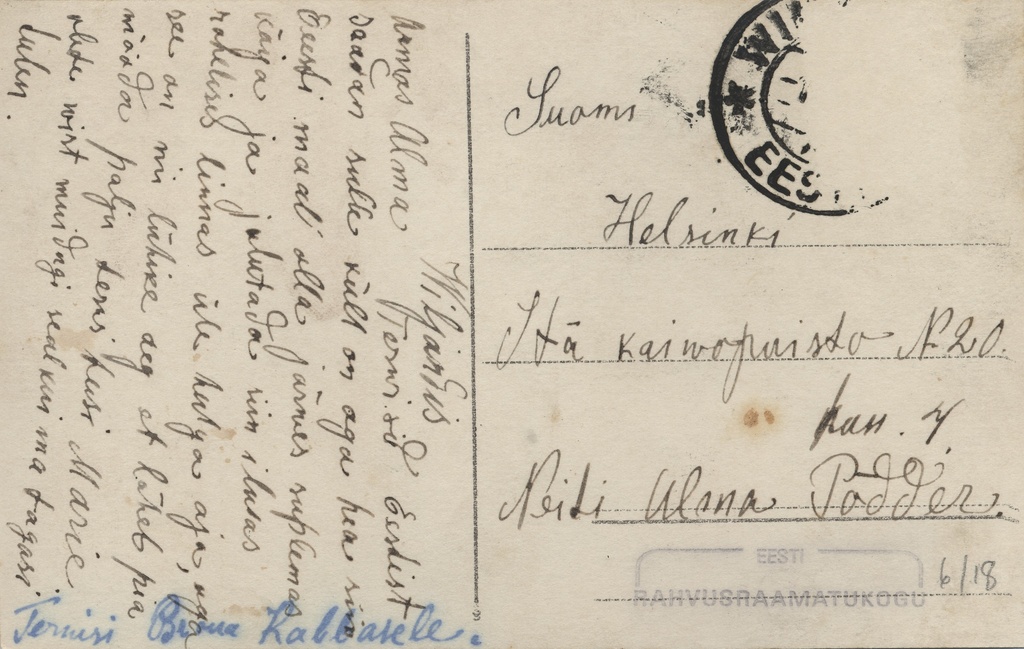 Wiljandis
Armas Alma Terwisid Eestist
saadan sulle küll on aga hea siin
Eesti maal olla järwes suplemas
käja ja jalutada siin ilusas
rohelises linnas üle hulga aja, aga
see on nii lühike aeg et läheb pea
mööda palju terwisi Marie
olete wist muidugi seal kui ma tagasi
tulen.
Terwisi Kabbasele.
Suomi
Helsinki
Itä kaiwopuisto N:20.
4
Neiti Alma Podder.
EESTI
EESTI
RAHVUSRAAMATUKOGU
6/18